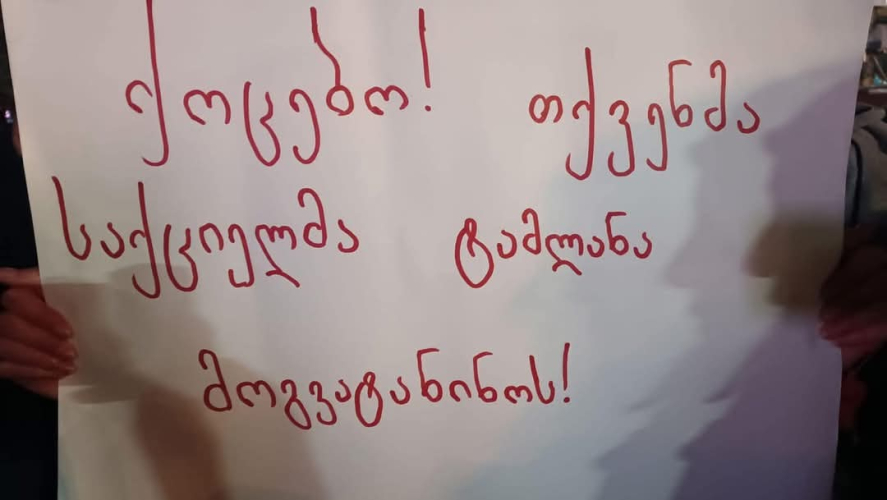 ქოცებო! თქვენმა
საქციელმა ტამლანა
მოგვატანინოს!